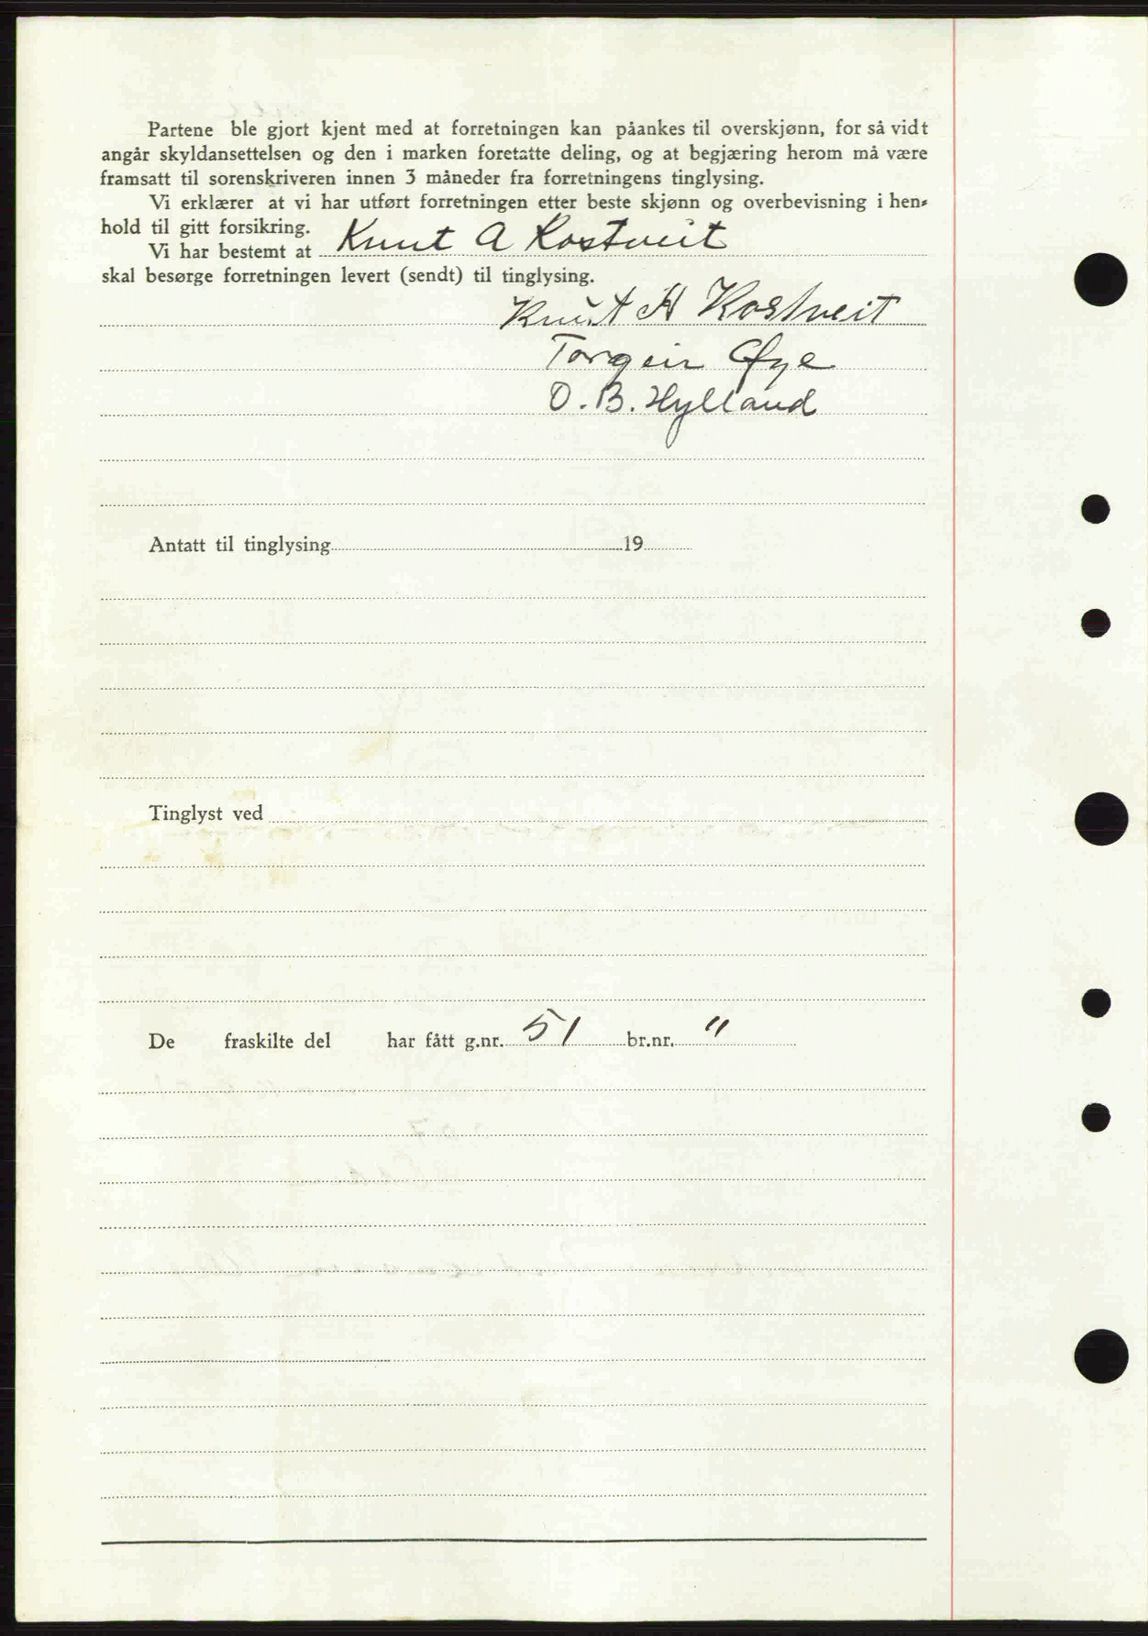 Partene ble gjort kjent med at forretningen kan påankes til overskjønn, for så vidt
angår skyldansettelsen og den i marken foretatte deling, og at begjæring herom må være
framsatt til sorenskriveren innen 3 måneder fra forretningens tinglysing.
Vi erklærer at vi har utført forretningen etter beste skjønn og overbevisning i hen-
hold til gitt forsikring.
Vi har bestemt at Knut A Rostveit
skal besørge forretningen levert (sendt) til tinglysing.
Knut A Rostveit
Torgeir Øye
O. B. Hylland
Antatt til tinglysing 19
Tinglyst ved
De fraskilte del har fått g.nr. 51 br.nr. 11